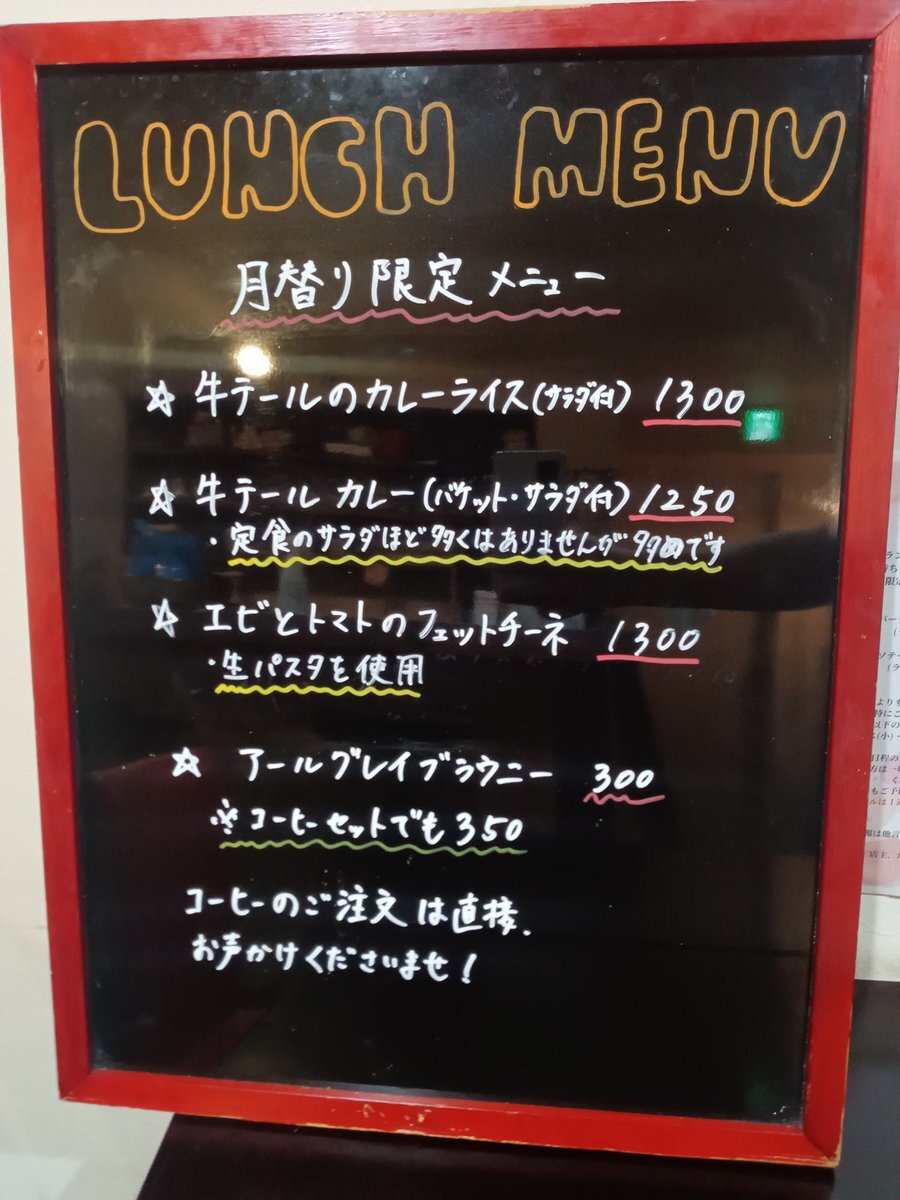 LUNCH MENU
月替り限定メニュー
☆ 牛テールのカレーライス(サラダ付) 1300
☆ 牛テール カレー(バケット・サラダ付) 1250
・定食のサラダほど多くはありませんが多めです
☆ エビとトマトのフェットチーネ 1300
・生パスタを使用
☆ アールグレイブラウニー 300
※コーヒーセットでも350
コーヒーのご注文は直接、
お声かけくださいませ!